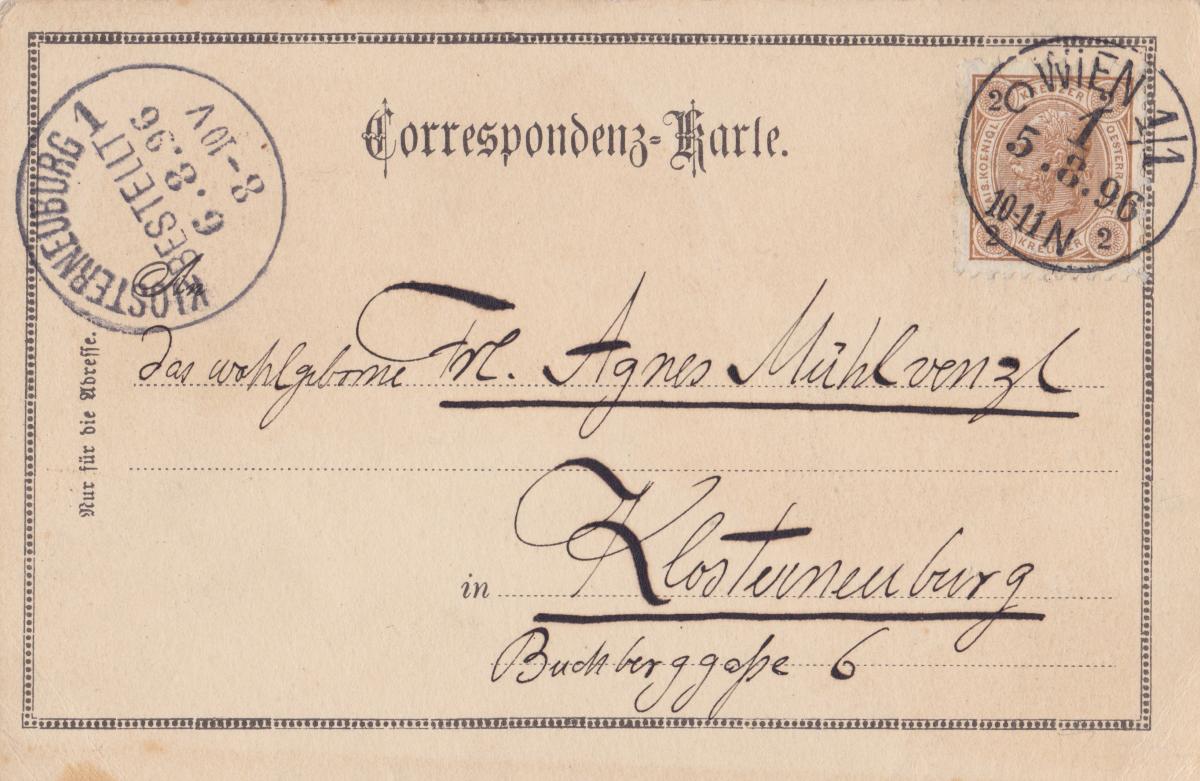 Correspondenz-Karte.
KLOSTERNEUBURG 1
BESTELLT
6.8.96
8-10V
WIEN 1/1
1
5.8.96
10-11N
2 2
KAIS. KOENIGL. OESTERR.
2 KREUZER 2
An
das wohlgeborne Frl. Agnes Mühlvenzl
in Klosterneuburg
Buchberggaße 6
Nur für die Adresse.